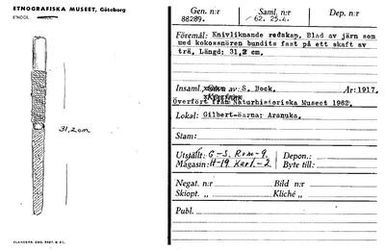 ETNOGRAFISKA MUSEET, Göteborg
31,2 cm
Gen. n:r
88289.
Saml. n:r
62. 25.4.
Dep. n:r
Föremål: Knivliknande redskap. Blad av järn som
med kokossnören bundits fast på ett skaft av
trä, Längd: 31,2 cm.
Insaml. av S. Bock. År: 1917.
Överfört från Naturhistoriska Museet 1962.
Lokal: Gilbert-öarna: Aranuka.
Stam:
Utställt: G-S. Rom-9. Depon.:
Magasin: H-19 Karl.-2 Byte till:
Negat. n:r Bild n:r
Skiopt. „ Kliché „
Publ.